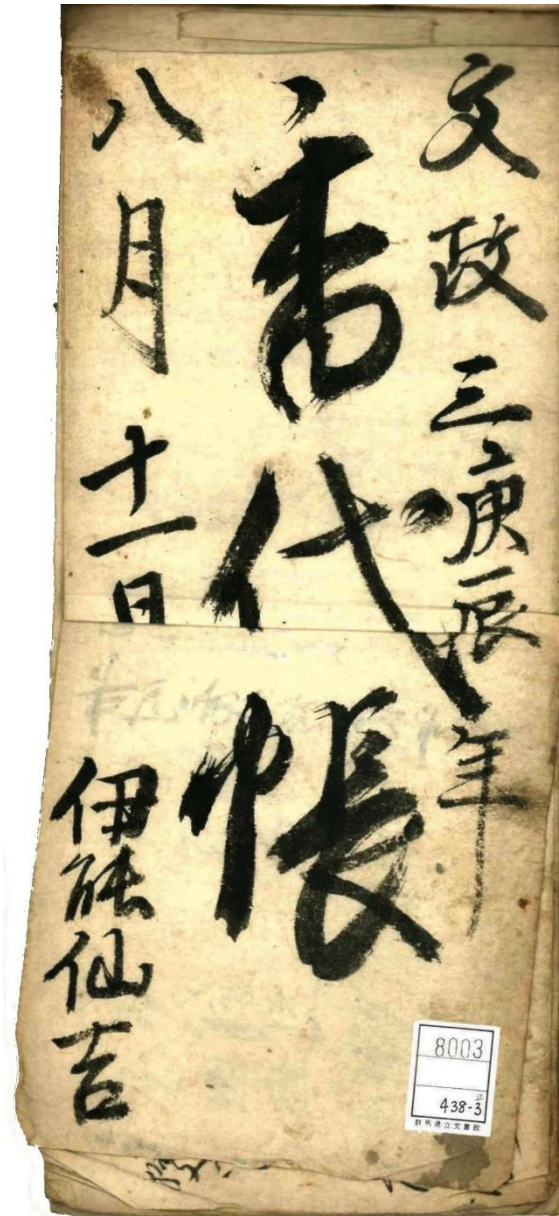 文政三庚辰年
香代帳
八月十一日
伊能仙吉
8003
438-3
群馬県立文書館